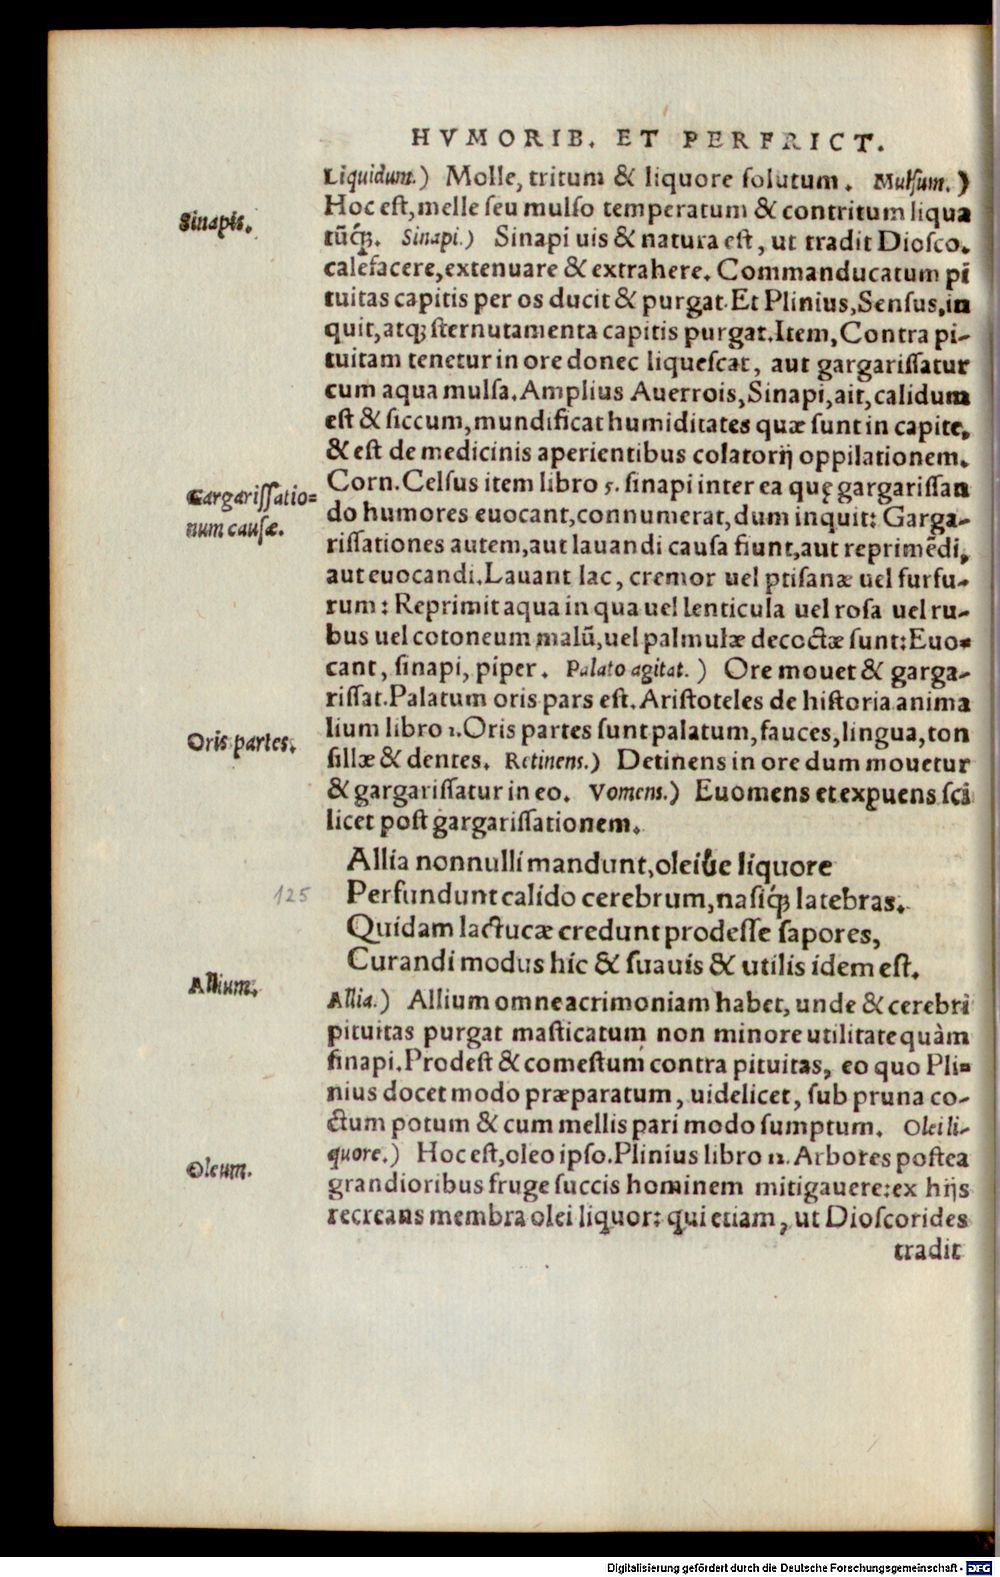 HVMORIB. ET PERFRICT.
Liquidum.) Molle, tritum & liquore ſolutum. Mulſum.)
Sinapis.
Hoc eſt, melle ſeu mulſo temperatum & contritum liqua
tũq́ꝫ. Sinapi.) Sinapi uis & natura eſt, ut tradit Dioſco.
calefacere, extenuare & extrahere. Commanducatum pĩ
tuitas capitis per os ducit & purgat. Et Plinius, Senſus, in
quit, atqꝫ ſternutamenta capitis purgat. Item, Contra pi-
tuitam tenetur in ore donec liqueſcat, aut gargariſſatur
cum aqua mulſa. Amplius Auerrois, Sinapi, ait, calidum
eſt & ſiccum, mundificat humiditates quæ ſunt in capite,
& eſt de medicinis aperientibus colatorij oppilationem.
Gargariſſatio=
num cauſæ.
Corn. Celſus item libro 5. ſinapi inter ea quę gargariſſan
do humores euocant, connumerat, dum inquit: Garga-
riſſationes autem, aut lauandi cauſa fiunt, aut reprimẽdi,
aut euocandi. Lauant lac, cremor uel ptiſanæ uel furfu-
rum: Reprimit aqua in qua uel lenticula uel roſa uel ru-
bus uel cotoneum malũ, uel palmulæ decoctæ ſunt: Euo=
cant, ſinapi, piper. Palato agitat.) Ore mouet & garga-
riſſat. Palatum oris pars eſt. Ariſtoteles de hiſtoria anima
Oris partes.
lium libro 1. Oris partes ſunt palatum, fauces, lingua, ton
ſillæ & dentes. Retinens.) Detinens in ore dum mouetur
& gargariſſatur in eo. Vomens.) Euomens et expuens ſci
licet poſt gargariſſationem.
Allia nonnulli mandunt, oleiúe liquore
125
Perfundunt calido cerebrum, naſiq́ꝫ latebras.
Quidam lactucæ credunt prodeſſe ſapores,
Curandi modus hic & ſuauis & utilis idem eſt.
Allium.
Allia.) Allium omne acrimoniam habet, unde & cerebri
pituitas purgat maſticatum non minore utilitate quàm
ſinapi. Prodeſt & comeſtum contra pituitas, eo quo Pli=
nius docet modo præparatum, uidelicet, ſub pruna co-
ctum potum & cum mellis pari modo ſumptum. Olei li-
Oleum.
quore.) Hoc eſt, oleo ipſo. Plinius libro 12. Arbores poſtea
grandioribus fruge ſuccis hominem mitigauere: ex hijs
recreans membra olei liquor: qui etiam, ut Dioſcorides
tradit
Digitalisierung gefördert durch die Deutsche Forschungsgemeinschaft - DFG